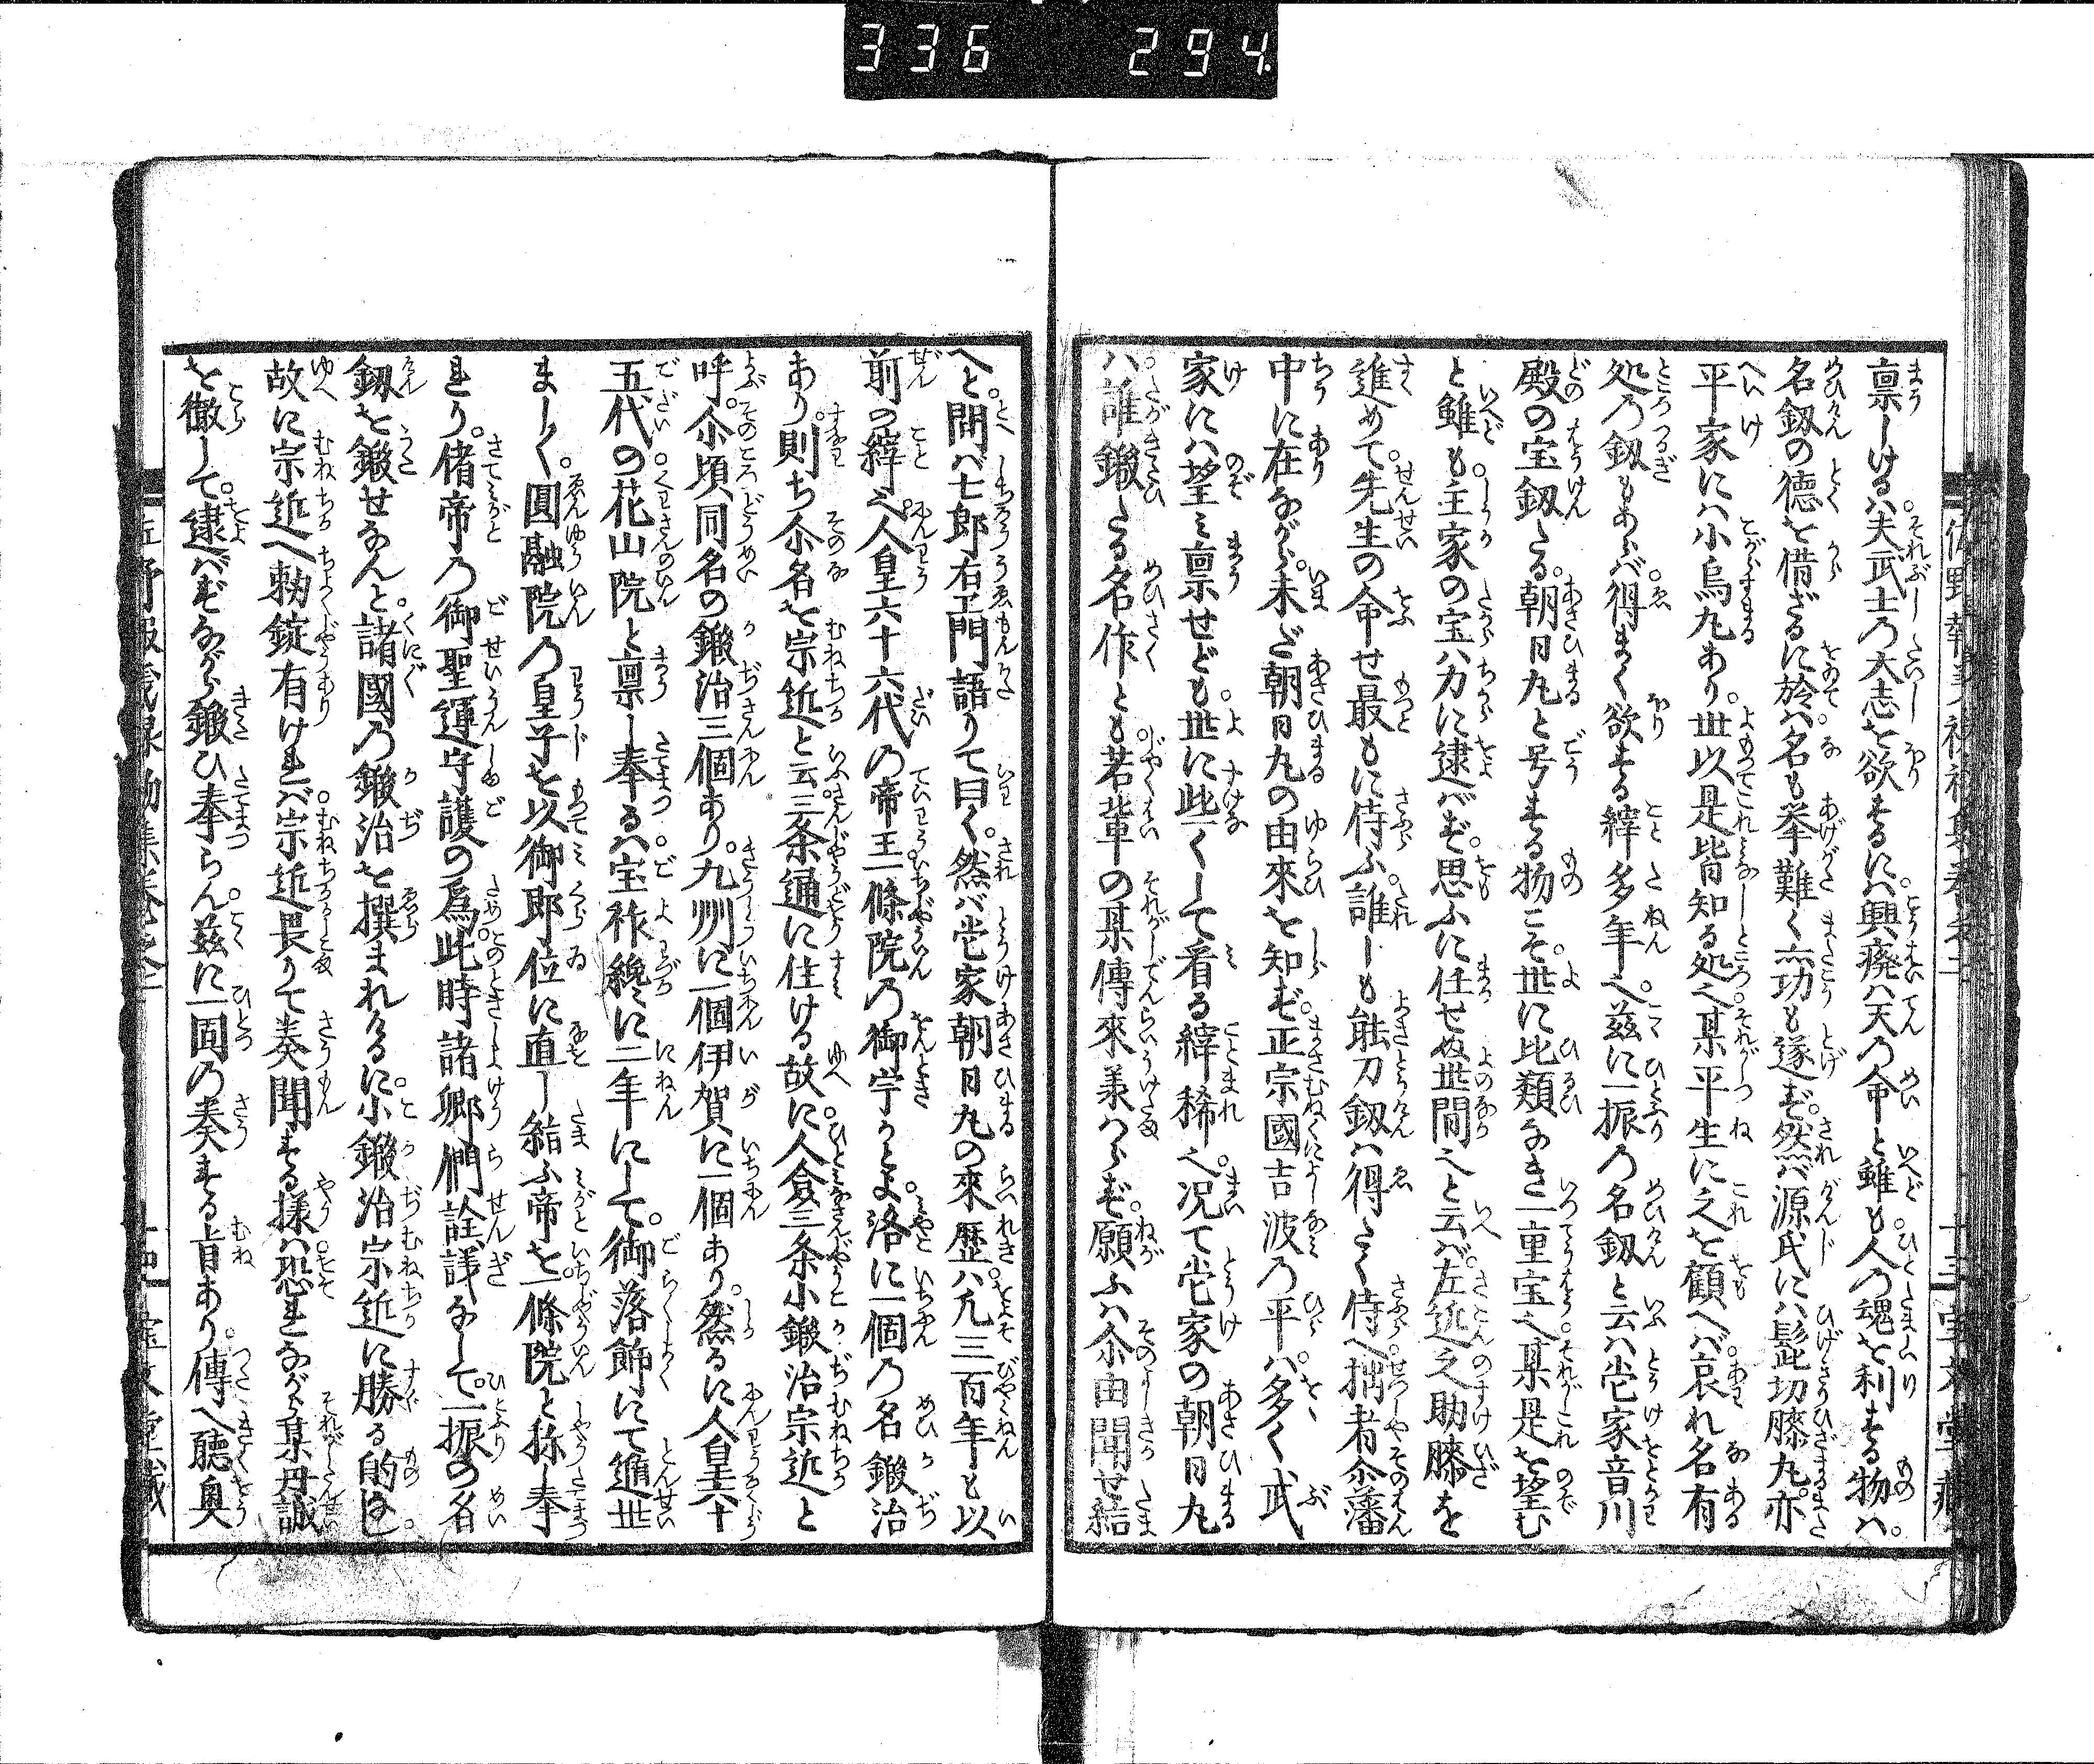 336 294.
稟しけるハ。夫武士乃大志を欲するに。興廃ハ天乃命と雖も。人乃魂を利する物ハ。
名釼の徳を借ざるに於ハ。名も挙難く亦功も遂ず。然バ源氏にハ髭切膝丸。亦
平家にハ小烏丸あり。世以是皆知る処也。某平生に之を顧へバ。哀れ名有
処乃釼もあらバ。得まく欲する縡多年也。茲に一振乃名釼と云ハ。当家音川
殿の宝釼たる。朝日丸と号する物こそ。世に比類なき一重宝也。某是を望む
と雖も。主家の宝ハ力に逮バず。思ふに任せぬ世間也と云バ。左近之助膝を
進めて。先生の命せ最もに侍ふ。誰しも能刀釼ハ得たく侍へ。拙者尒藩
中に在ながら。未ざ朝日丸の由來を知ず。正宗國吉波乃平ハ。多く武
家にハ望ミ稟せども。世に些くして看る縡稀也。况て当家の朝日丸
ハ。誰鍛たる名作とも。若輩の某傳來義ハらず。願ふハ尒由聞せ給
へと。問バ七郎右エ門語りて曰く。然バ当家朝日丸の來歴ハ。凡三百年も以
前の縡也。人皇六十六代の帝王。一條院乃御宇かとよ。洛に一個乃名鍛治
あり。則ち尒名を宗近と云。三条通に住ける故に。人僉三条小鍛治宗近と
呼。尒頃同名の鍛治三個あり。九州に一個伊賀に一個あり。然るに人皇六十
五代の。花山院と稟し奉るハ。宝祚纔に二年にして。御落飾にて遁世
まし〳〵。圓融院乃皇子を以御即位に直し給ふ帝を。一條院と称し奉
れり。偖帝乃御聖運守護の為。此時諸卿們詮議なして。一振の名
釼を鍛せなんと。諸國乃鍛治を撰まれけるに。小鍛治宗近に勝る的なし。
故に宗近へ勅錠有けれバ。宗近畏りて奏聞する様ハ。恐れながら某丹誠
を徹して。逮バずながら鍛ひ奉らん。茲に一固乃奏する旨あり。傳へ聴奥
十三
宝文堂蔵